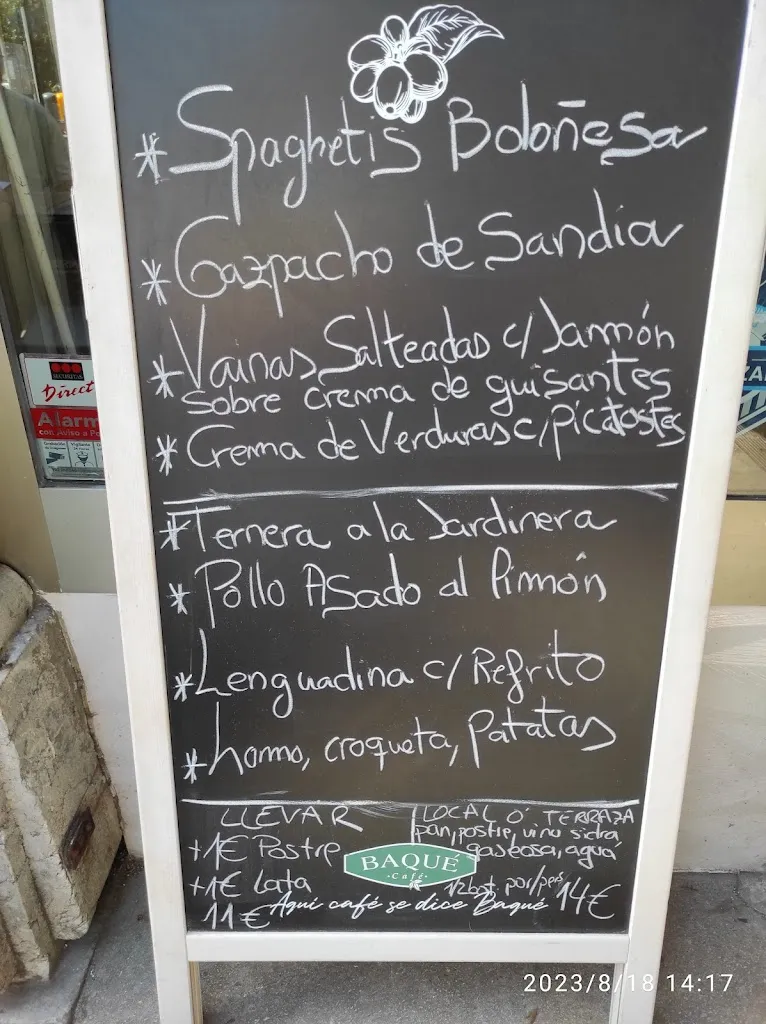 * Spaghetis Boloñesa
* Gazpacho de Sandia
* Vainas Salteadas c/Jamón
sobre crema de guisantes
* Crema de Verduras c/picatostes
* Ternera a la Jardinera
* Pollo Asado al Pimón
* Lenguadina c/Refrito
* Lomo, croqueta, Patatas
LLEVAR
+1€ Postre
+1€ Lata
11€
LOCAL O' TERRAZA
pan, postre, vino sidra
gaseosa, agua
1/2 bot. por/pers
14€
BAQUÉ
Café
Aquí café se dice Baqué
Direct
Alarm
con Aviso a Po
2023/8/18 14:17